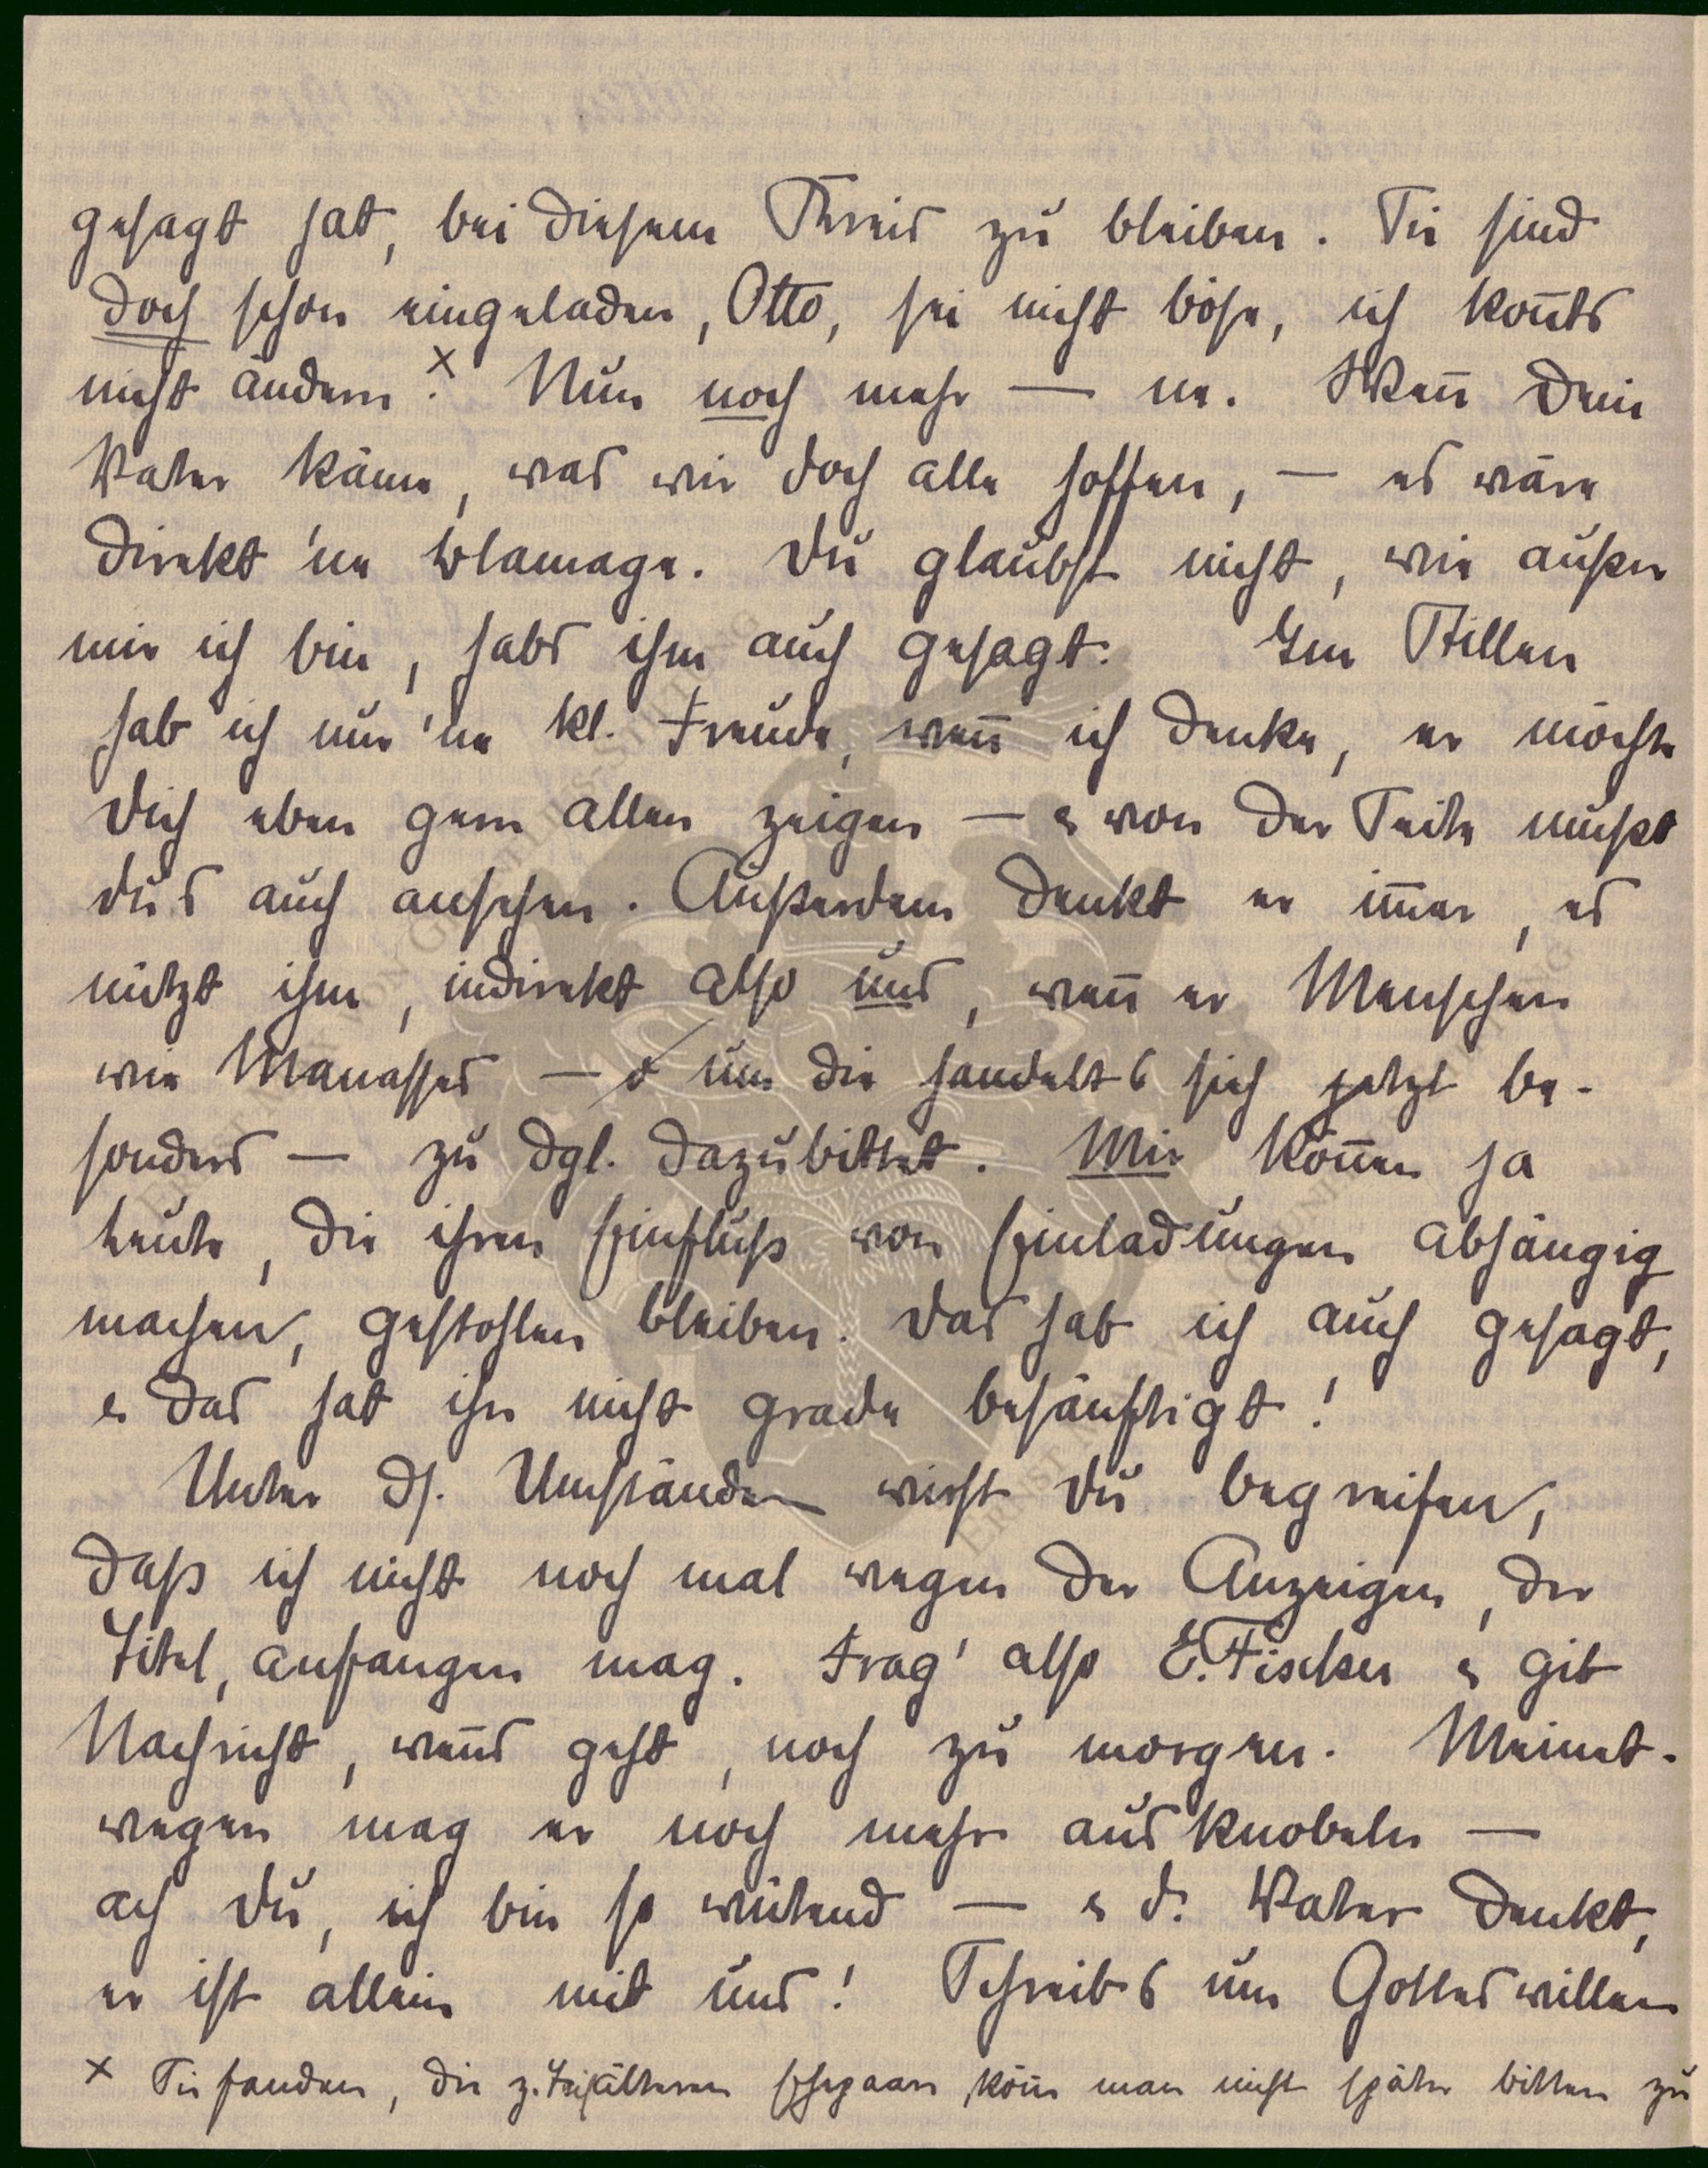 gesagt hat, bei diesem Kreis zu bleiben. Sie sind
doch schon eingeladen, Otto, sei nicht böse, ich konn̄ts
nicht ändern.x Nun noch mehr — ne. Wen̄ Dein
Vater käme, was wir doch alle hoffen, — es wäre
direkt 'ne Blamage. Du glaubst nicht, wie außer
mir ich bin, habs ihm auch gesagt. Im Stillen
hab ich nur 'ne kl. Freude, wen̄ ich denke, er möchte
Dich eben gern allen zeigen — & von der Seite mußt
Du's auch ansehen. Außerdem denkt er im̄er, es
nützt ihm, indirekt also uns, wen̄ er Menschen
wie Manasses — um die handelt's sich jetzt be-
sonders — zu dgl. dazubittet. Mir kön̄en ja
Leute, die ihren Einfluß von Einladungen abhängig
machen, gestohlen bleiben. Das hab ich auch gesagt,
& das hat ihn nicht grade besänftigt!
Unter ds. Umständen wirst Du begreifen,
daß ich nicht noch mal wegen der Anzeigen, der
Titel, anfangen mag. Frag' also E. Fischer & gib
Nachricht, wen̄s geht, noch zu morgen. Meinet-
wegen mag er noch mehr ausknobeln —
ach Du, ich bin so wütend — & d. Vater denkt,
er ist allein mit uns! Schreib's um Gottes willen
x Sie fanden, die z. Teil älteren Ehepaare kön̄ man nicht später bitten zu